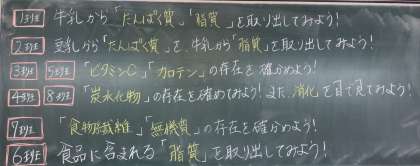 1班 牛乳から「たんぱく質」「脂質」を取り出してみよう!
2班 豆乳から「たんぱく質」を、牛乳から「脂質」を取り出してみよう!
3班 5班 「ビタミンC」「カロテン」の存在を確かめよう!
4班 8班 「炭水化物」の存在を確めてみよう!また、消化を目で見てみよう!
7班 「食物繊維」「無機質」の存在を確かめよう!
6班 食品に含まれる「脂質」を取り出してみよう!